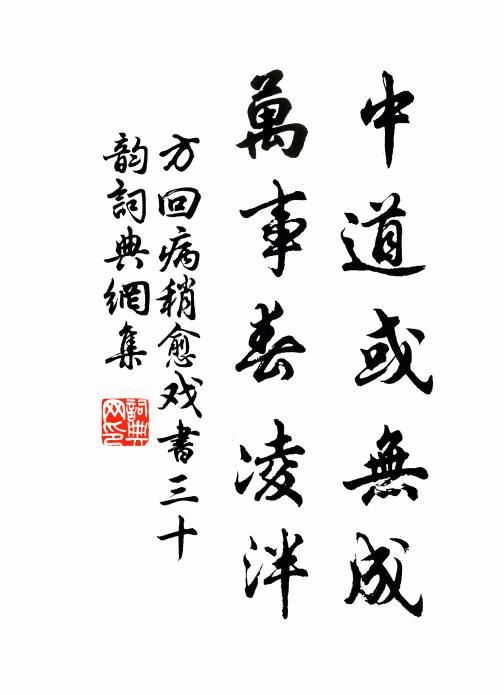 中道或無成
萬事春凌泮
方回病稍愈戏書三十
韵詞典網集
詞典網印